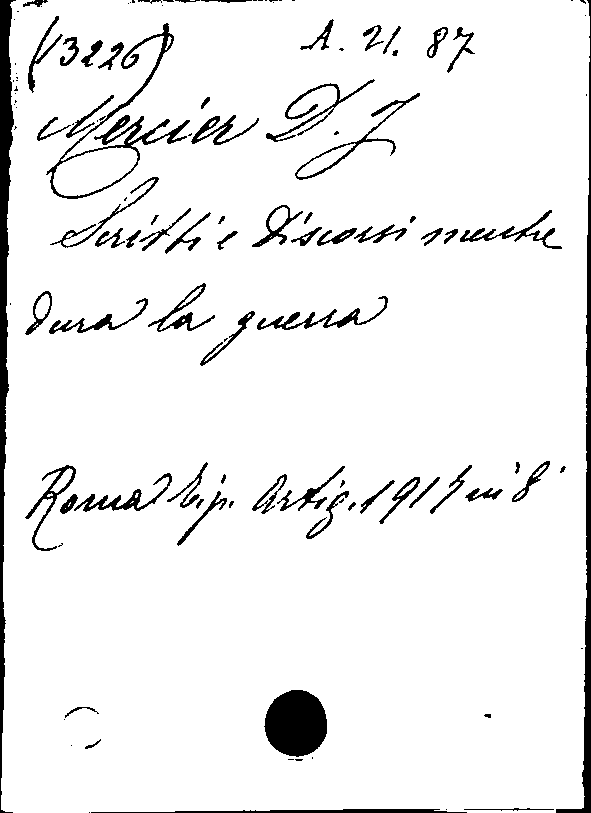 (13226) A. 21. 87
Mercier D. J
Scritti e Discorsi mentre
dura la guerra
Roma Tip. Artig. 1917 in 8°